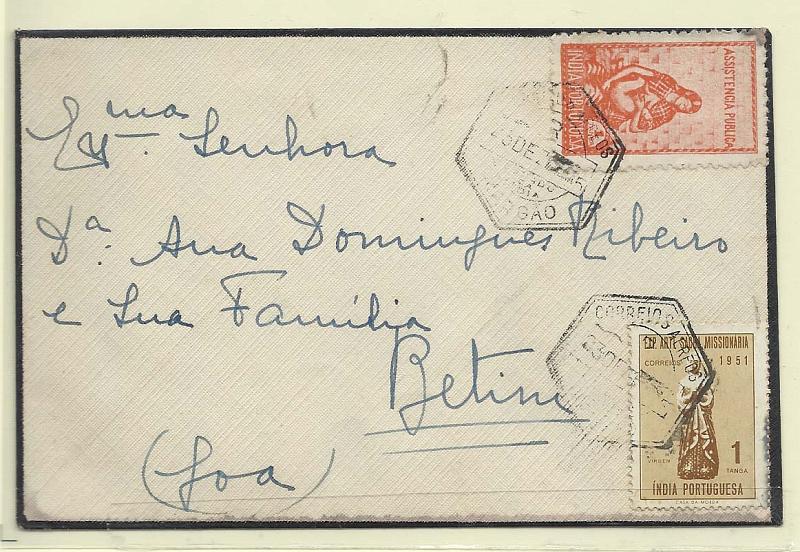 Exma Senhora
Dª. Ana Domingues Ribeiro
e Sua Família
Betim
(Goa)
ASSISTENCIA PUBLICA
INDIA PORTUGUESA
CORREIOS AEREOS
EXP ARTE SACRA MISSIONÁRIA
CORREIOS 1951
VIRGEM
1
TANGA
ÍNDIA PORTUGUESA
CASA DA MOEDA